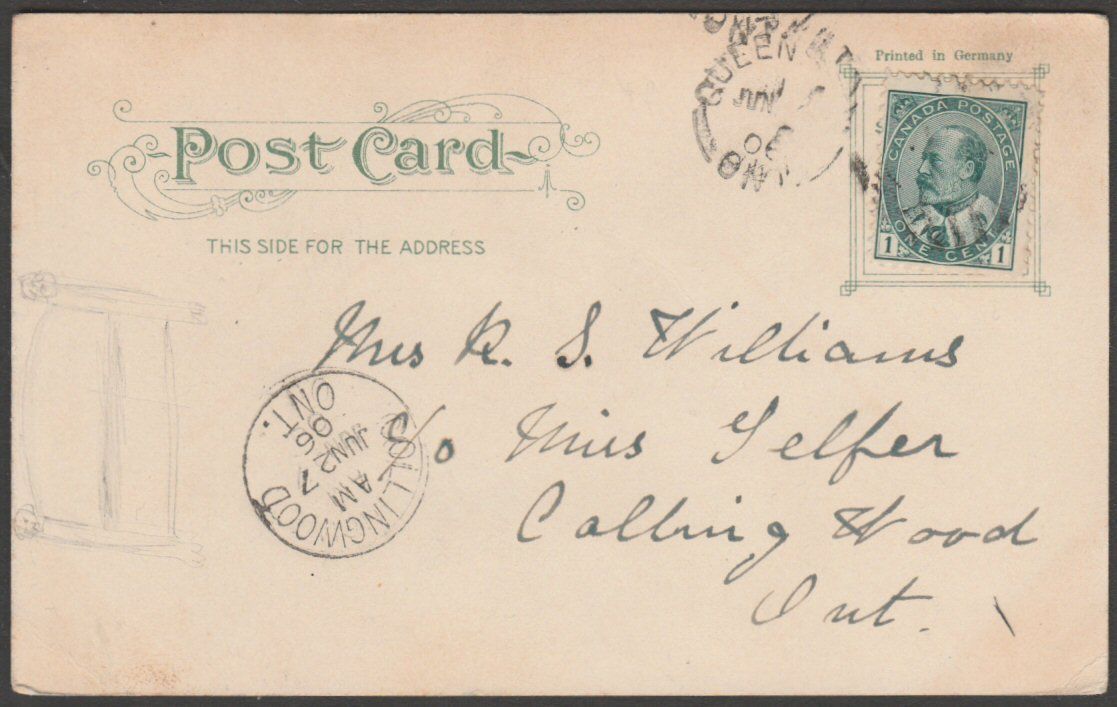 Printed in Germany
QUEEN
JUN
06
ONT
Post Card
THIS SIDE FOR THE ADDRESS
CANADA POSTAGE
1 ONE CENT 1
Mrs R. S. Williams
c/o Miss Telfer
Colling Wood
Ont.
COLLINGWOOD
AM
7
JUN 27
06
ONT.